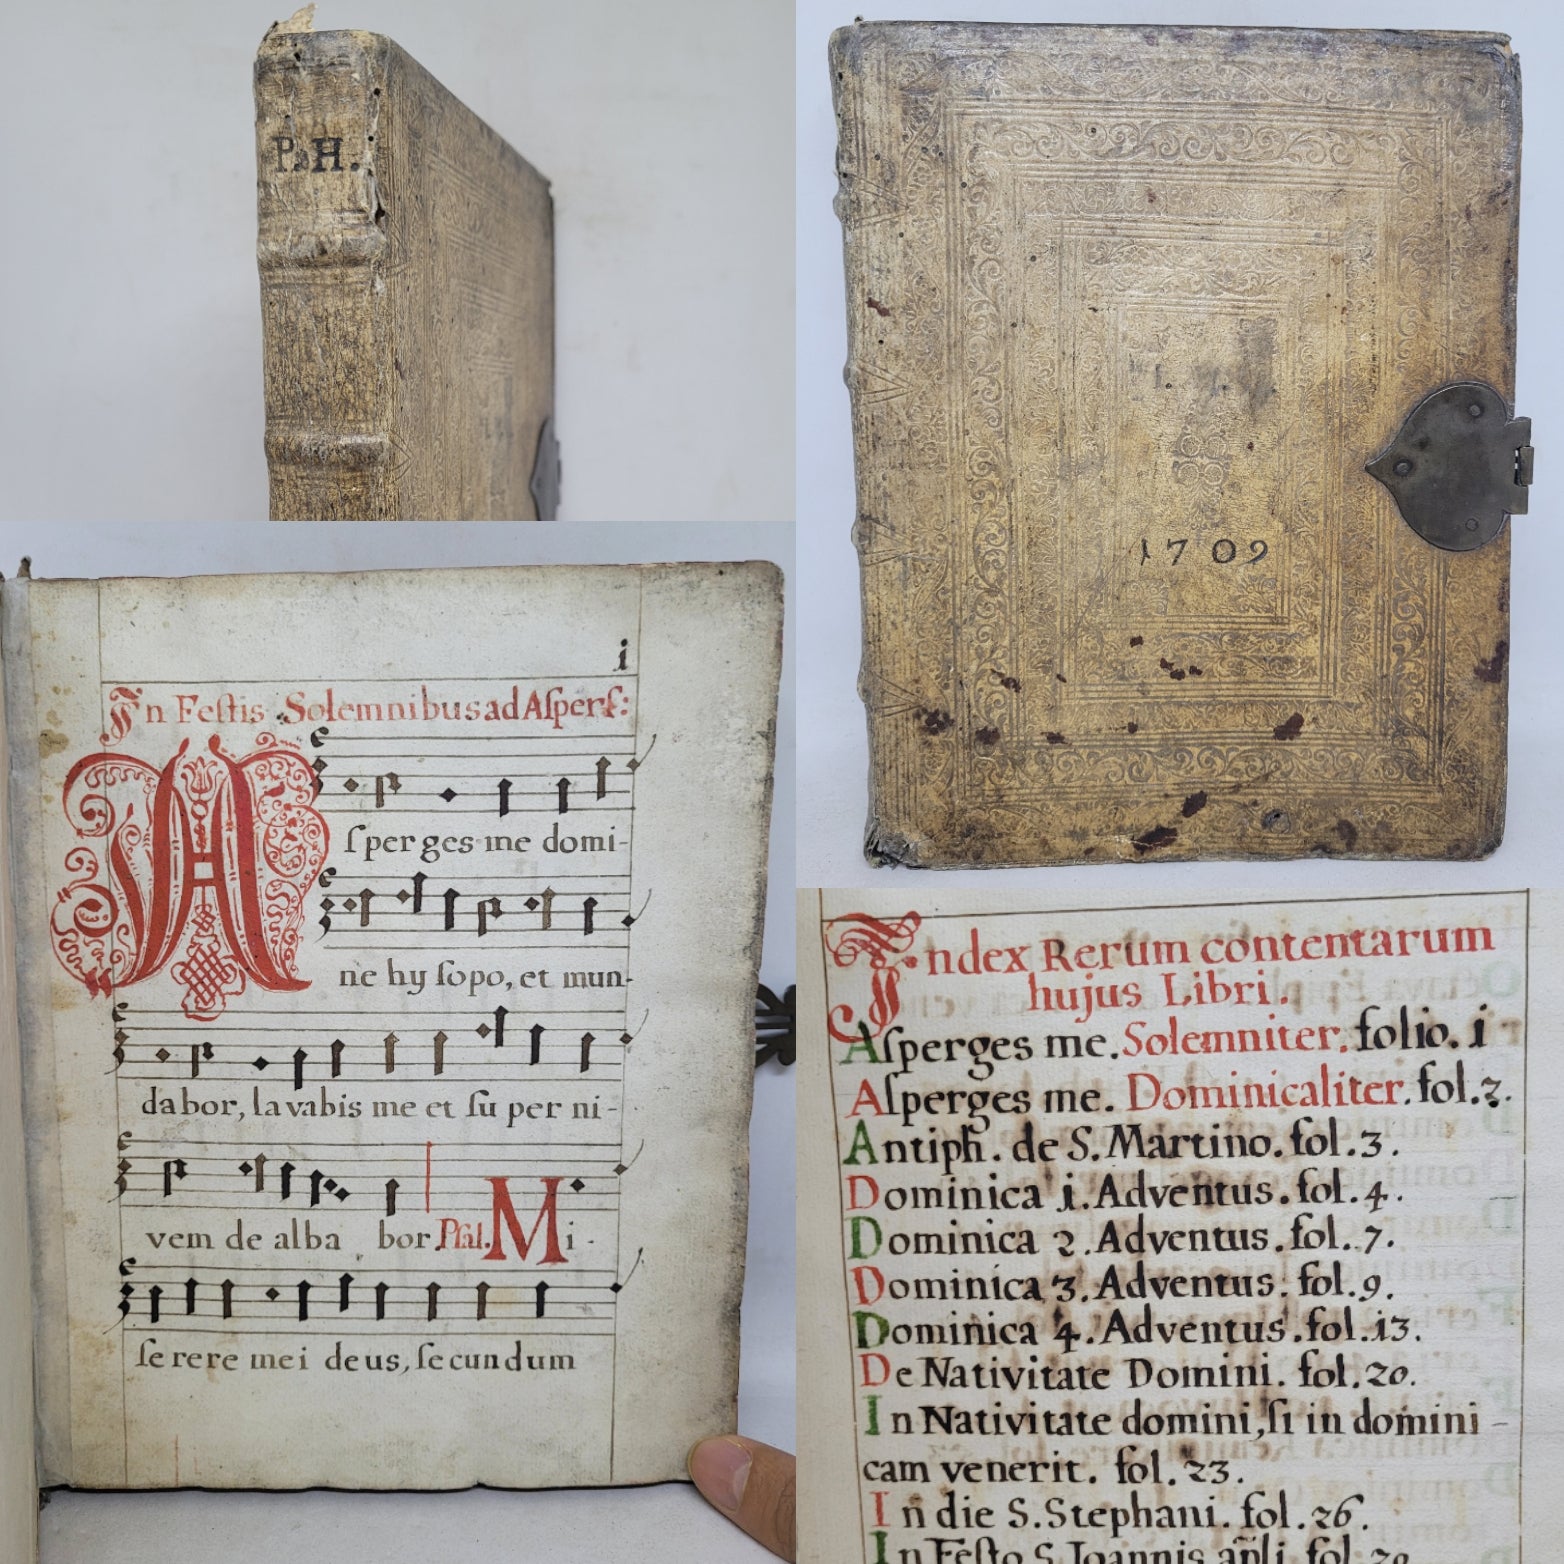 P. H.
1709
i
In Feſtis Solemnibus ad Aſperſ:
Aſperges me domi-
ne hyſopo, et mun-
dabor, lavabis me et ſuper ni-
vem de alba bor. Pſal. Mi-
ſerere mei deus, ſecundum
Index Rerum contentarum
hujus Libri.
Aſperges me. Solemniter. folio. i
Aſperges me. Dominicaliter. fol. 2.
Antiph. de S. Martino. fol. 3.
Dominica i. Adventus. fol. 4.
Dominica 2. Adventus. fol. 7.
Dominica 3. Adventus. fol. 9.
Dominica 4. Adventus. fol. i3.
De Nativitate Domini. fol. 20.
In Nativitate domini, ſi in domini-
cam venerit. fol. 23.
In die S. Stephani. fol. 26.
In Feſto S. Joannis apli. fol.